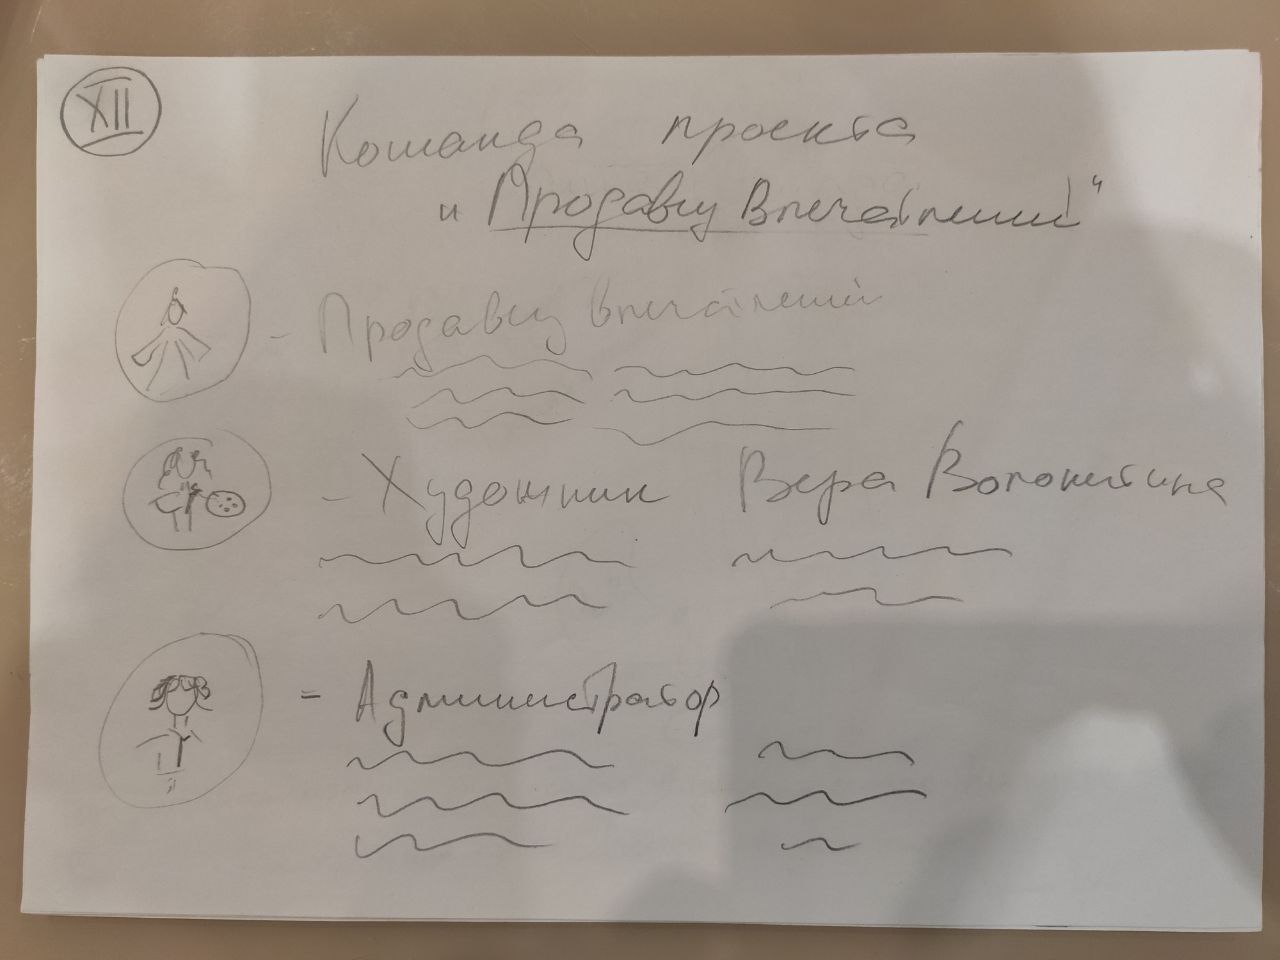 XII
Команда проекта
"Продавец Впечатлений"
- Продавец впечатлений
- Художник Вера
= Администратор